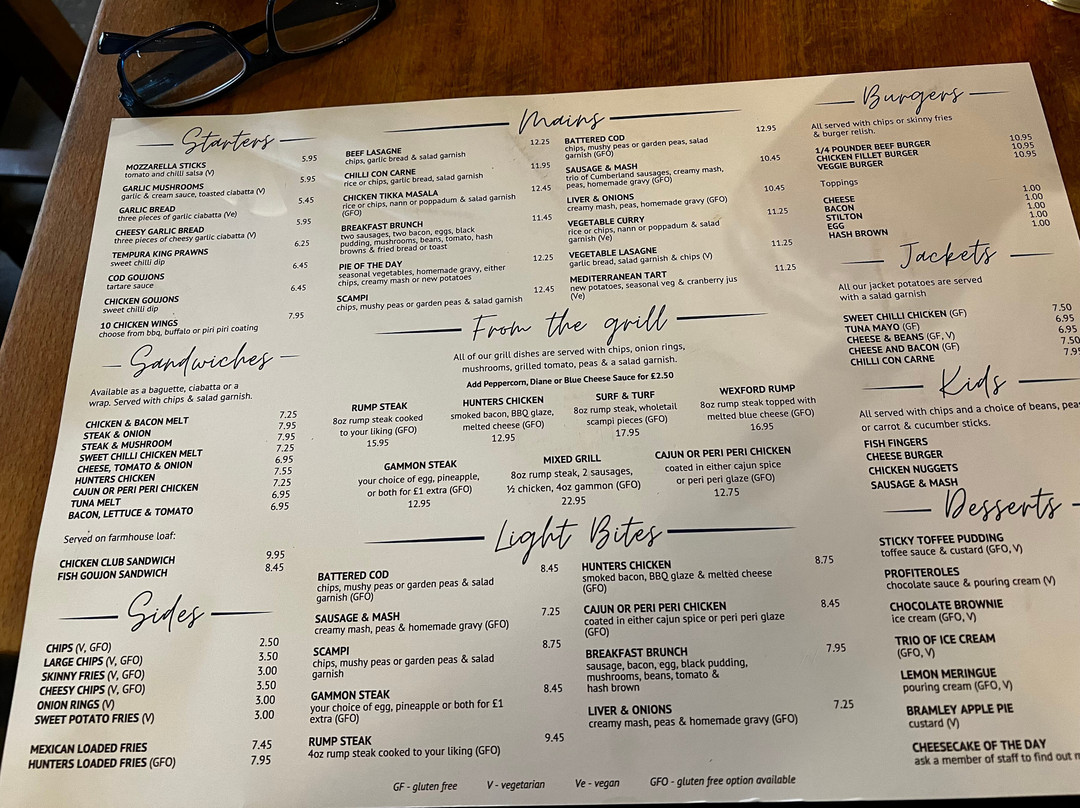 Starters
MOZZARELLA STICKS 5.95
tomato and chilli salsa (V)
GARLIC MUSHROOMS 5.95
garlic & cream sauce, toasted ciabatta (V)
GARLIC BREAD 5.45
three pieces of garlic ciabatta (Ve)
CHEESY GARLIC BREAD 5.95
three pieces of cheesy garlic ciabatta (V)
TEMPURA KING PRAWNS 6.25
sweet chilli dip
COD GOUJONS 6.45
tartare sauce
CHICKEN GOUJONS 6.45
sweet chilli dip
10 CHICKEN WINGS 7.95
choose from bbq, buffalo or piri piri coating
Sandwiches
Available as a baguette, ciabatta or a
wrap. Served with chips & salad garnish.
CHICKEN & BACON MELT 7.25
STEAK & ONION 7.95
STEAK & MUSHROOM 7.95
SWEET CHILLI CHICKEN MELT 7.25
CHEESE, TOMATO & ONION 6.95
HUNTERS CHICKEN 7.55
CAJUN OR PERI PERI CHICKEN 7.25
TUNA MELT 6.95
BACON, LETTUCE & TOMATO 6.95
Served on farmhouse loaf:
CHICKEN CLUB SANDWICH 9.95
FISH GOUJON SANDWICH 8.45
Sides
CHIPS (V, GFO) 2.50
LARGE CHIPS (V, GFO) 3.50
SKINNY FRIES (V, GFO) 3.00
CHEESY CHIPS (V, GFO) 3.50
ONION RINGS (V) 3.00
SWEET POTATO FRIES (V) 3.00
MEXICAN LOADED FRIES 7.45
HUNTERS LOADED FRIES (GFO) 7.95
Mains
BEEF LASAGNE 12.25
chips, garlic bread & salad garnish
CHILLI CON CARNE 11.95
rice or chips, garlic bread, salad garnish
CHICKEN TIKKA MASALA 12.45
rice or chips, nann or poppadum & salad garnish
(GFO)
BREAKFAST BRUNCH 11.45
two sausages, two bacon, eggs, black
pudding, mushrooms, beans, tomato, hash
browns & fried bread or toast
PIE OF THE DAY 12.25
seasonal vegetables, homemade gravy, either
chips, creamy mash or new potatoes
SCAMPI 12.45
chips, mushy peas or garden peas & salad garnish
BATTERED COD 12.95
chips, mushy peas or garden peas, salad
garnish (GFO)
SAUSAGE & MASH 10.45
trio of Cumberland sausages, creamy mash,
peas, homemade gravy (GFO)
LIVER & ONIONS 10.45
creamy mash, peas, homemade gravy (GFO)
VEGETABLE CURRY 11.25
rice or chips, nann or poppadum & salad
garnish (Ve)
VEGETABLE LASAGNE 11.25
garlic bread, salad garnish & chips (V)
MEDITERRANEAN TART 11.25
new potatoes, seasonal veg & cranberry jus
(Ve)
From the grill
All of our grill dishes are served with chips, onion rings,
mushrooms, grilled tomato, peas & a salad garnish.
Add Peppercorn, Diane or Blue Cheese Sauce for £2.50
RUMP STEAK
8oz rump steak cooked
to your liking (GFO)
15.95
HUNTERS CHICKEN
smoked bacon, BBQ glaze,
melted cheese (GFO)
12.95
SURF & TURF
8oz rump steak, wholetail
scampi pieces (GFO)
17.95
WEXFORD RUMP
8oz rump steak topped with
melted blue cheese (GFO)
16.95
GAMMON STEAK
your choice of egg, pineapple,
or both for £1 extra (GFO)
12.95
MIXED GRILL
8oz rump steak, 2 sausages,
½ chicken, 4oz gammon (GFO)
22.95
CAJUN OR PERI PERI CHICKEN
coated in either cajun spice
or peri peri glaze (GFO)
12.75
Light Bites
BATTERED COD 8.45
chips, mushy peas or garden peas & salad
garnish (GFO)
SAUSAGE & MASH 7.25
creamy mash, peas & homemade gravy (GFO)
SCAMPI 8.75
chips, mushy peas or garden peas & salad
garnish
GAMMON STEAK 8.45
your choice of egg, pineapple or both for £1
extra (GFO)
RUMP STEAK 9.45
4oz rump steak cooked to your liking (GFO)
HUNTERS CHICKEN 8.75
smoked bacon, BBQ glaze & melted cheese
(GFO)
CAJUN OR PERI PERI CHICKEN 8.45
coated in either cajun spice or peri peri glaze
(GFO)
BREAKFAST BRUNCH 7.95
sausage, bacon, egg, black pudding,
mushrooms, beans, tomato &
hash brown
LIVER & ONIONS 7.25
creamy mash, peas & homemade gravy (GFO)
Burgers
All served with chips or skinny fries
& burger relish.
1/4 POUNDER BEEF BURGER 10.95
CHICKEN FILLET BURGER 10.95
VEGGIE BURGER 10.95
Toppings
CHEESE 1.00
BACON 1.00
STILTON 1.00
EGG 1.00
HASH BROWN 1.00
Jackets
All our jacket potatoes are served
with a salad garnish
SWEET CHILLI CHICKEN (GF) 7.50
TUNA MAYO (GF) 6.95
CHEESE & BEANS (GF, V) 6.95
CHEESE AND BACON (GF) 7.50
CHILLI CON CARNE 7.95
Kids
All served with chips and a choice of beans, peas
or carrot & cucumber sticks.
FISH FINGERS
CHEESE BURGER
CHICKEN NUGGETS
SAUSAGE & MASH
Desserts
STICKY TOFFEE PUDDING
toffee sauce & custard (GFO, V)
PROFITEROLES
chocolate sauce & pouring cream (V)
CHOCOLATE BROWNIE
ice cream (GFO, V)
TRIO OF ICE CREAM
(GFO, V)
LEMON MERINGUE
pouring cream (GFO, V)
BRAMLEY APPLE PIE
custard (V)
CHEESECAKE OF THE DAY
ask a member of staff to find out
GF - gluten free V - vegetarian Ve - vegan GFO - gluten free option available